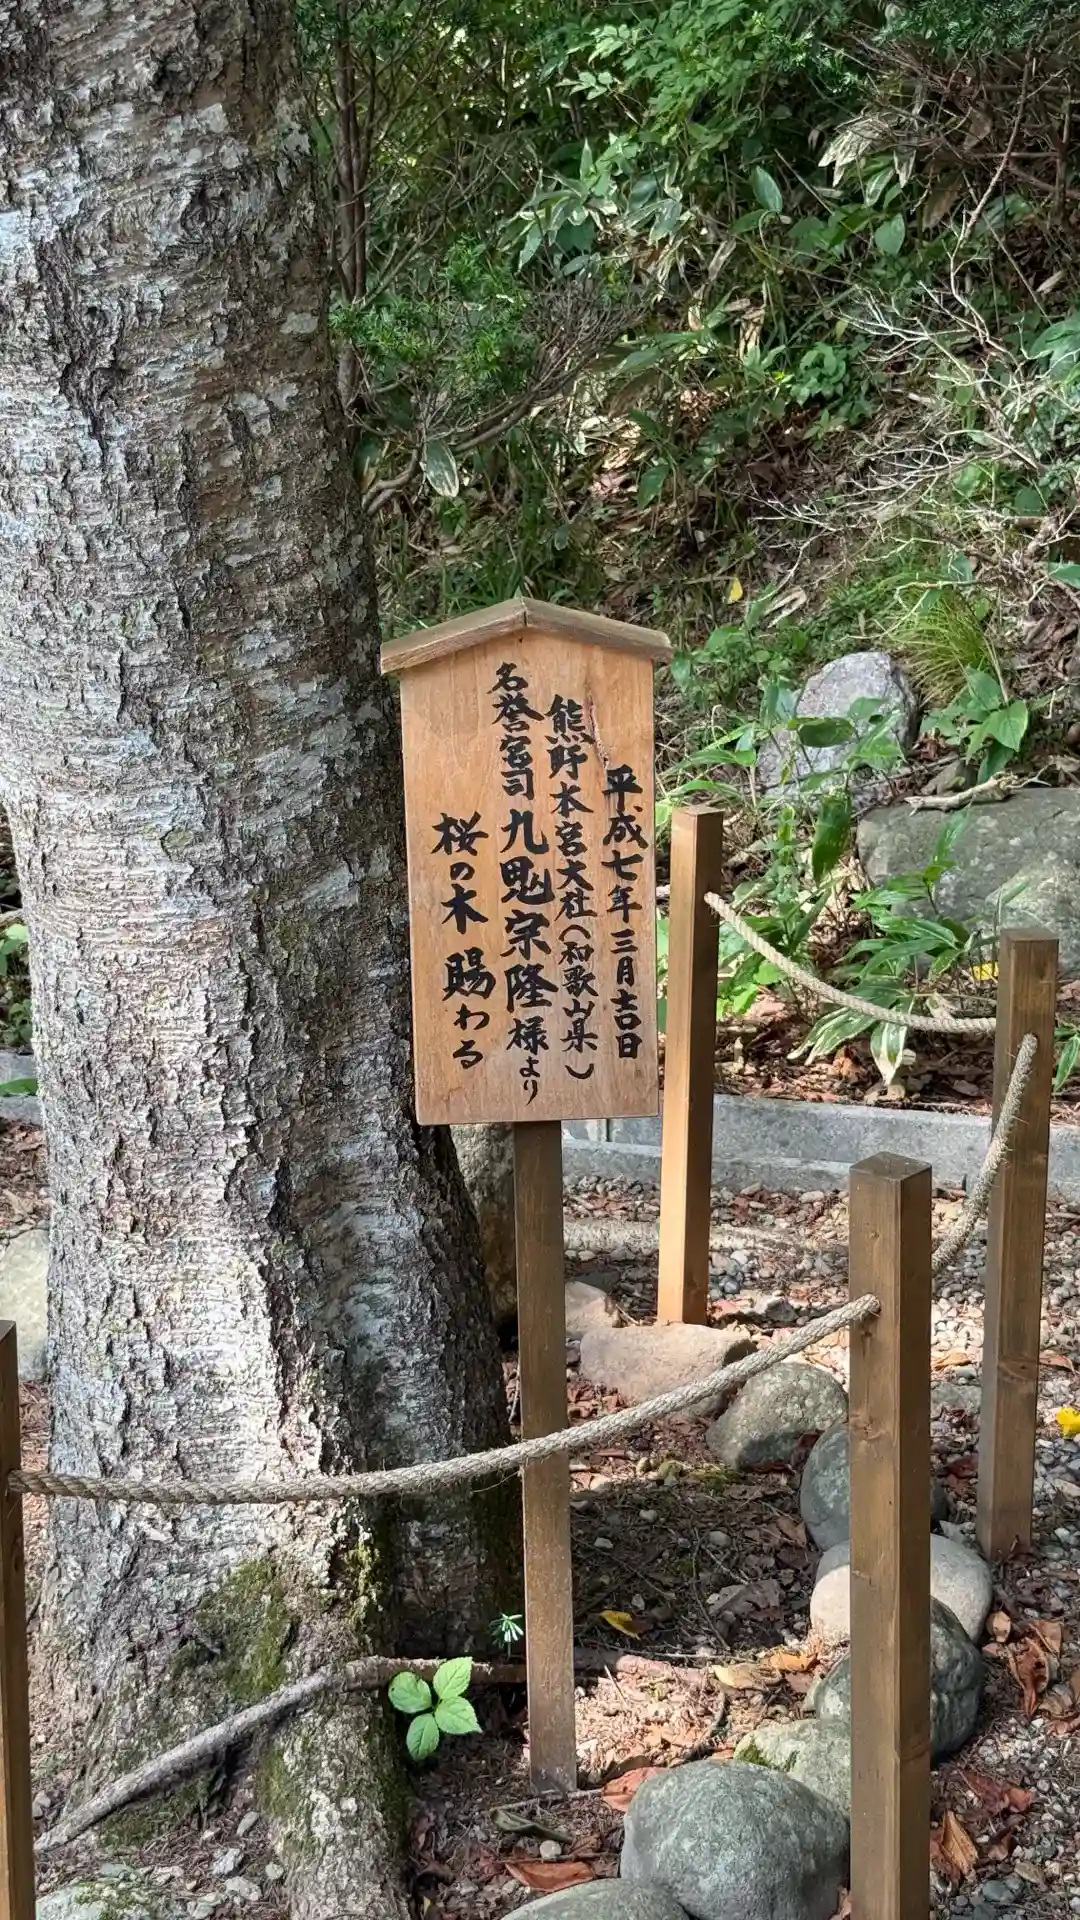 平成七年三月吉日
熊野本宮大社(和歌山県)
名誉宮司九鬼宗隆様より
桜の木賜わる